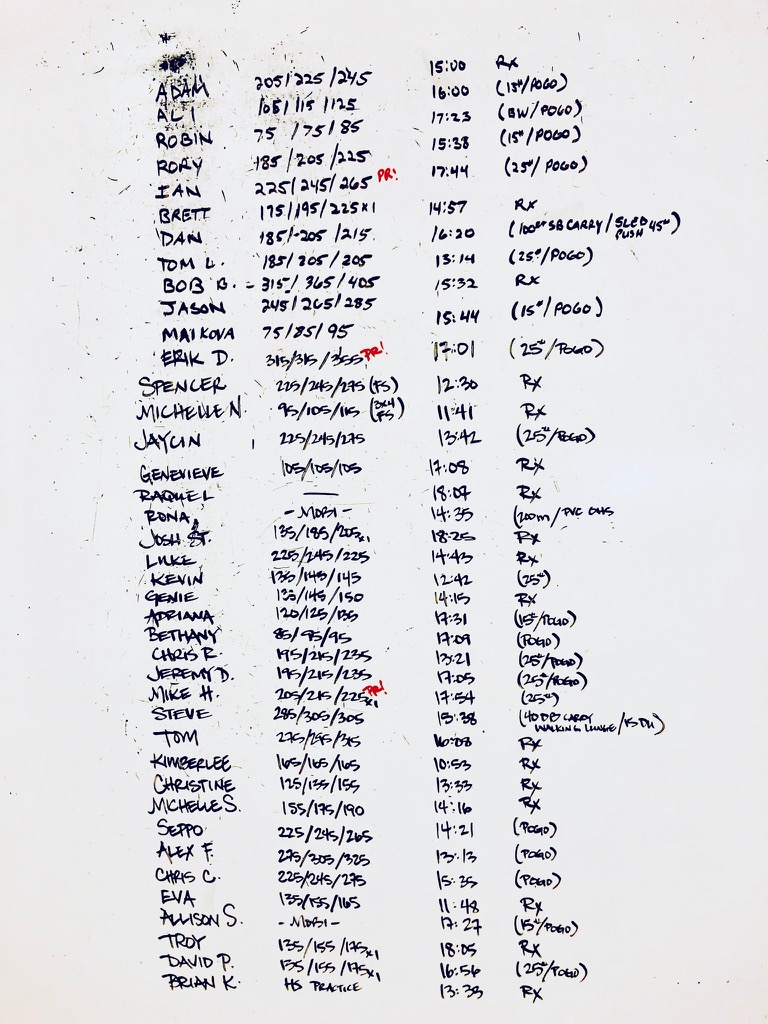 ADAM 205/225/245 15:00 Rx
ALI 105/115/125 16:00 (15#/POGO)
ROBIN 75/75/85 17:23 (BW/POGO)
RORY 185/205/225 15:38 (15#/POGO)
IAN 225/245/265 PR! 17:44 (25#/POGO)
BRETT 175/195/225x1 14:57 Rx
DAN 185/205/215 16:20 (100# SB CARRY/SLED PUSH 45#)
TOM L. 185/205/205 13:14 (25#/POGO)
BOB B. - 315/365/405 15:32 Rx
JASON 245/265/285 15:44 (15#/POGO)
MAIKOVA 75/85/95
ERIK D. 315/315/355 PR! 17:01 (25#/POGO)
SPENCER 225/245/275 (FS) 12:30 Rx
MICHELLE N. 95/105/115 (3x4 FS) 11:41 Rx
JAYLIN 225/245/275 13:42 (25#/POGO)
GENEVIEVE 105/105/105 17:08 Rx
RAQUEL — 18:07 Rx
RONA - MOBI - 14:35 (200m/PVC OHS
JOSH ST. 135/185/205x1 18:25 Rx
LUKE 225/245/225 14:43 Rx
KEVIN 135/145/145 12:42 (25#)
GENIE 135/145/150 14:15 Rx
ADRIANA 120/125/135 17:31 (15#/POGO)
BETHANY 85/95/95 17:09 (POGO)
CHRIS R. 195/215/235 13:21 (25#/POGO)
JEREMY D. 195/215/235 17:05 (25#/POGO)
MIKE H. 205/215/225x1 PR! 17:54 (25#)
STEVE 285/305/305 15:38 (40 DB CARRY WALKING LUNGE/15 DU)
TOM 275/295/315 16:08 Rx
KIMBERLEE 165/165/165 10:53 Rx
CHRISTINE 125/135/155 13:33 Rx
MICHELLE S. 155/175/190 14:16 Rx
SEPPO 225/245/265 14:21 (POGO)
ALEX F. 275/305/325 13:13 (POGO)
CHRIS C. 225/245/275 15:35 (POGO)
EVA 135/155/165 11:48 Rx
ALLISON S. - MOBI - 17:27 (15#/POGO)
TROY 135/155/175x1 18:05 Rx
DAVID P. 135/155/175x1 16:56 (25#/POGO)
BRIAN K. HS PRACTICE 13:33 Rx